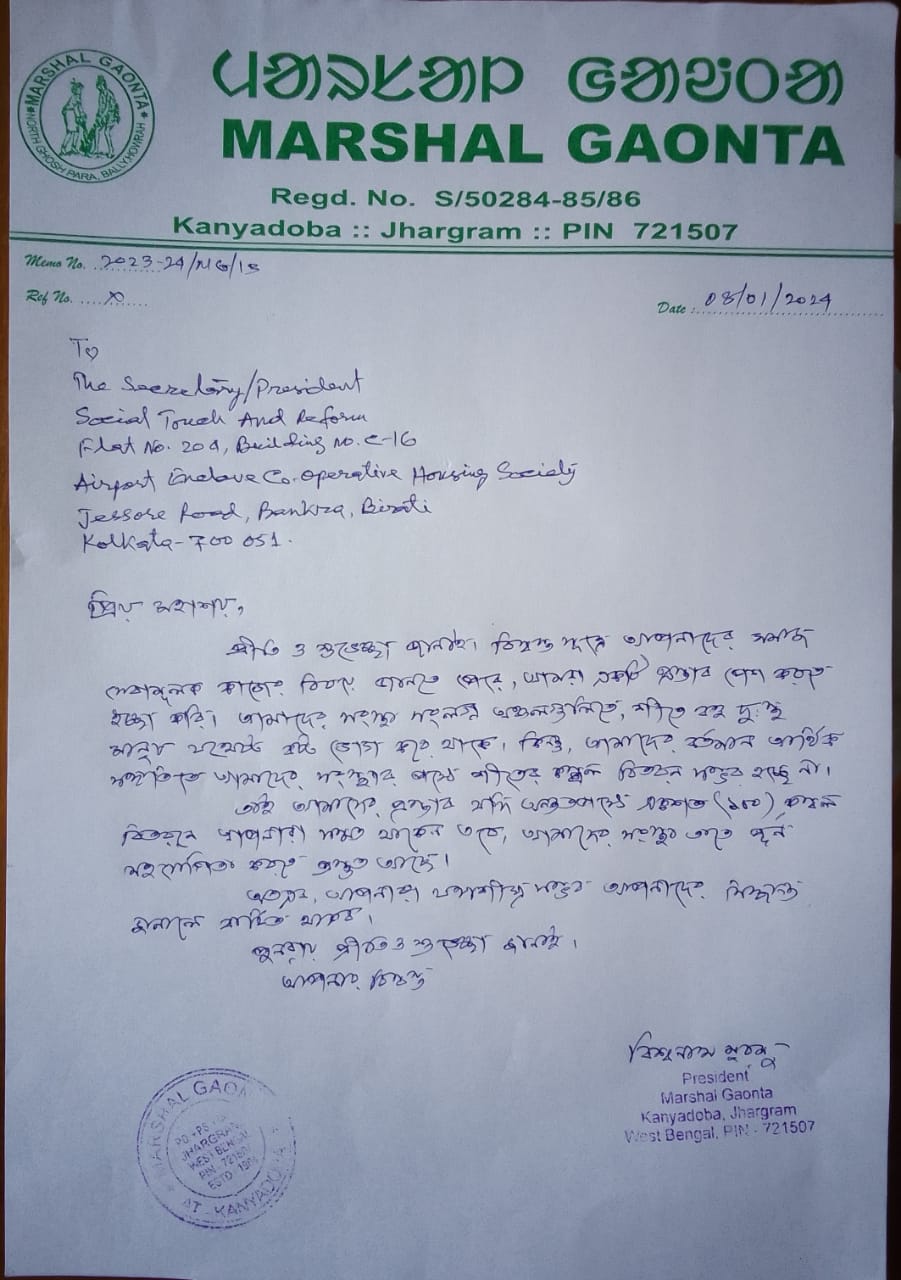 ᱢᱟᱨᱥᱟᱞ ᱜᱟᱶᱛᱟ
MARSHAL GAONTA
MARSHAL GAONTA
NORTH GHOSH PARA, BALLY, HOWRAH
Regd. No. S/50284-85/86
Kanyadoba :: Jhargram :: PIN 721507
Memo No. 2023-24/MG/15
Ref No. ....X......
Date :. 08/01/2024
To
The Secretary/President
Social Touch And Reform
Flat No. 204, Building No. C-16
Airport Enclave Co-operative Housing Society
Jessore Road, Bankra, Birati
Kolkata-700 051.
প্রিয় মহাশয়,
প্রীতি ও শুভেচ্ছা জানাই। বিশ্বস্ত সূত্রে আপনাদের সমাজ
সেবামূলক কাজের বিষয়ে জানতে পেরে, আমরা একটি প্রস্তাব পেশ করতে
ইচ্ছা করি। আমাদের সংস্থা সংলগ্ন অঞ্চলগুলিতে, শীতে বহু দুঃস্থ
মানুষ যথেষ্ট কষ্ট ভোগ করে থাকে। কিন্তু, আমাদের বর্তমান আর্থিক
সঙ্গতিতে আমাদের সংস্থার পক্ষে শীতের কম্বল বিতরন সম্ভব হচ্ছে না।
তাই আমাদের প্রস্তাব যদি অন্ততপক্ষে একশত (১০০) কম্বল
বিতরনে আপনারা সম্মত থাকেন তবে, আমাদের সংস্থা তাতে পূর্ন
সহযোগিতা করতে প্রস্তুত আছে।
অতএব, আপনারা যথাশীঘ্র সম্ভব আপনাদের সিদ্ধান্ত
জানালে বাধিত থাকব।
পুনরায় প্রীতি ও শুভেচ্ছা জানাই।
আপনার বিশ্বস্ত
বিশ্বনাথ মুরমু
President
Marshal Gaonta
Kanyadoba, Jhargram
West Bengal, PIN - 721507
MARSHAL GAON
JHARGRAM
WEST BENGAL
PIN 72150
ESTD 19
AT - KANYADOBA